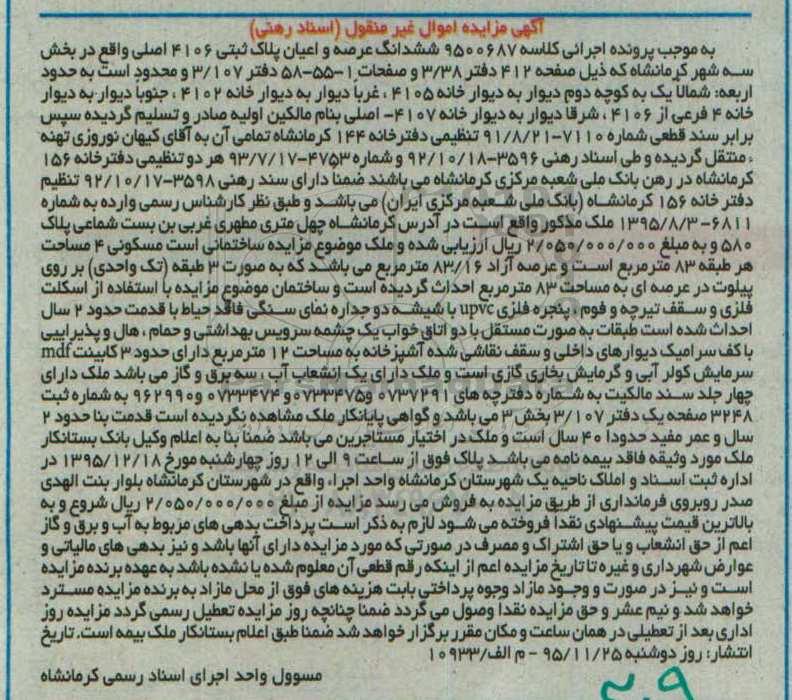 آگهی مزایده اموال غیر منقول (اسناد رهنی)
به موجب پرونده اجرائی کلاسه ۹۵۰۰۶۸۷ ششدانگ عرصه و اعیان پلاک ثبتی ۴۱۰۶ اصلی واقع در بخش
سه شهر کرمانشاه که ذیل صفحه ۴۱۲ دفتر ۳/۳۸ و صفحات ۱-۵۵-۵۸ دفتر ۳/۱۰۷ و محدود است به حدود
اربعه: شمالا یک به کوچه دوم دیوار به دیوار خانه ۴۱۰۵ ، غربا دیوار به دیوار خانه ۴۱۰۲ ، جنوبا دیوار به دیوار
خانه ۴ فرعی از ۴۱۰۶ ، شرقا دیوار به دیوار خانه ۴۱۰۷- اصلی بنام مالکین اولیه صادر و تسلیم گردیده سپس
برابر سند قطعی شماره ۷۱۱۰-۹۱/۸/۲۱ تنظیمی دفترخانه ۱۴۴ کرمانشاه تمامی آن به آقای کیهان نوروزی تهنه
، منتقل گردیده و طی اسناد رهنی ۳۵۹۶-۹۲/۱۰/۱۸ و شماره ۴۷۵۳-۹۳/۷/۱۷ هر دو تنظیمی دفترخانه ۱۵۶
کرمانشاه در رهن بانک ملی شعبه مرکزی کرمانشاه می باشند ضمنا دارای سند رهنی ۳۵۹۸-۹۲/۱۰/۱۷ تنظیم
دفتر خانه ۱۵۶ کرمانشاه (بانک ملی شعبه مرکزی ایران) می باشد و طبق نظر کارشناس رسمی وارده به شماره
۶۸۱۱-۱۳۹۵/۸/۳ ملک مذکور واقع است در آدرس کرمانشاه چهل متری مطهری غربی بن بست شماعی پلاک
۵۸۰ و به مبلغ ۲/۰۵۰/۰۰۰/۰۰۰ ریال ارزیابی شده و ملک موضوع مزایده ساختمانی است مسکونی ۴ مساحت
هر طبقه ۸۳ مترمربع است و عرصه آزاد ۸۳/۱۶ مترمربع می باشد که به صورت ۳ طبقه (تک واحدی) بر روی
پیلوت در عرصه ای به مساحت ۸۳ مترمربع احداث گردیده است و ساختمان موضوع مزایده با استفاده از اسکلت
فلزی و سقف تیرچه و فوم ، پنجره فلزی upvc با شیشه دو جداره نمای سنگی فاقد حیاط با قدمت حدود ۲ سال
احداث شده است طبقات به صورت مستقل با دو اتاق خواب یک چشمه سرویس بهداشتی و حمام ، هال و پذیرایی
با کف سرامیک دیوارهای داخلی و سقف نقاشی شده آشپزخانه به مساحت ۱۲ مترمربع دارای حدود ۳ کابینت mdf
سرمایش کولر آبی و گرمایش بخاری گازی است و ملک دارای یک انشعاب آب ، سه برق و گاز می باشد ملک دارای
چهار جلد سند مالکیت به شماره دفترچه های ۰۷۳۷۲۹۱ و ۰۷۳۳۴۷۵ و ۰۷۳۳۴۷۴ و ۹۶۲۹۹۰ به شماره ثبت
۳۲۴۸ صفحه یک دفتر ۳/۱۰۷ بخش ۳ می باشد و گواهی پایانکار ملک مشاهده نگردیده است قدمت بنا حدود ۲
سال و عمر مفید حدودا ۴۰ سال است و ملک در اختیار مستاجرین می باشد ضمنا بنا به اعلام وکیل بانک بستانکار
ملک مورد وثیقه فاقد بیمه نامه می باشد پلاک فوق از ساعت ۹ الی ۱۲ روز چهارشنبه مورخ ۱۳۹۵/۱۲/۱۸ در
اداره ثبت اسناد و املاک ناحیه یک شهرستان کرمانشاه واحد اجرا، واقع در شهرستان کرمانشاه بلوار بنت الهدی
صدر روبروی فرمانداری از طریق مزایده به فروش می رسد مزایده از مبلغ ۲/۰۵۰/۰۰۰/۰۰۰ ریال شروع و به
بالاترین قیمت پیشنهادی نقدا فروخته می شود لازم به ذکر است پرداخت بدهی های مربوط به آب و برق و گاز
اعم از حق انشعاب و یا حق اشتراک و مصرف در صورتی که مورد مزایده دارای آنها باشد و نیز بدهی های مالیاتی و
عوارض شهرداری و غیره تا تاریخ مزایده اعم از اینکه رقم قطعی آن معلوم شده یا نشده باشد به عهده برنده مزایده
است و نیز در صورت وجود مازاد وجوه پرداختی بابت هزینه های فوق از محل مازاد به برنده مزایده مسترد
خواهد شد و نیم عشر و حق مزایده نقدا وصول می گردد ضمنا چنانچه روز مزایده تعطیل رسمی گردد مزایده روز
اداری بعد از تعطیلی در همان ساعت و مکان مقرر برگزار خواهد شد ضمنا طبق اعلام بستانکار ملک بیمه است. تاریخ
انتشار: روز دوشنبه ۹۵/۱۱/۲۵ - م الف/۱۰۹۳۳
مسوول واحد اجرای اسناد رسمی کرمانشاه